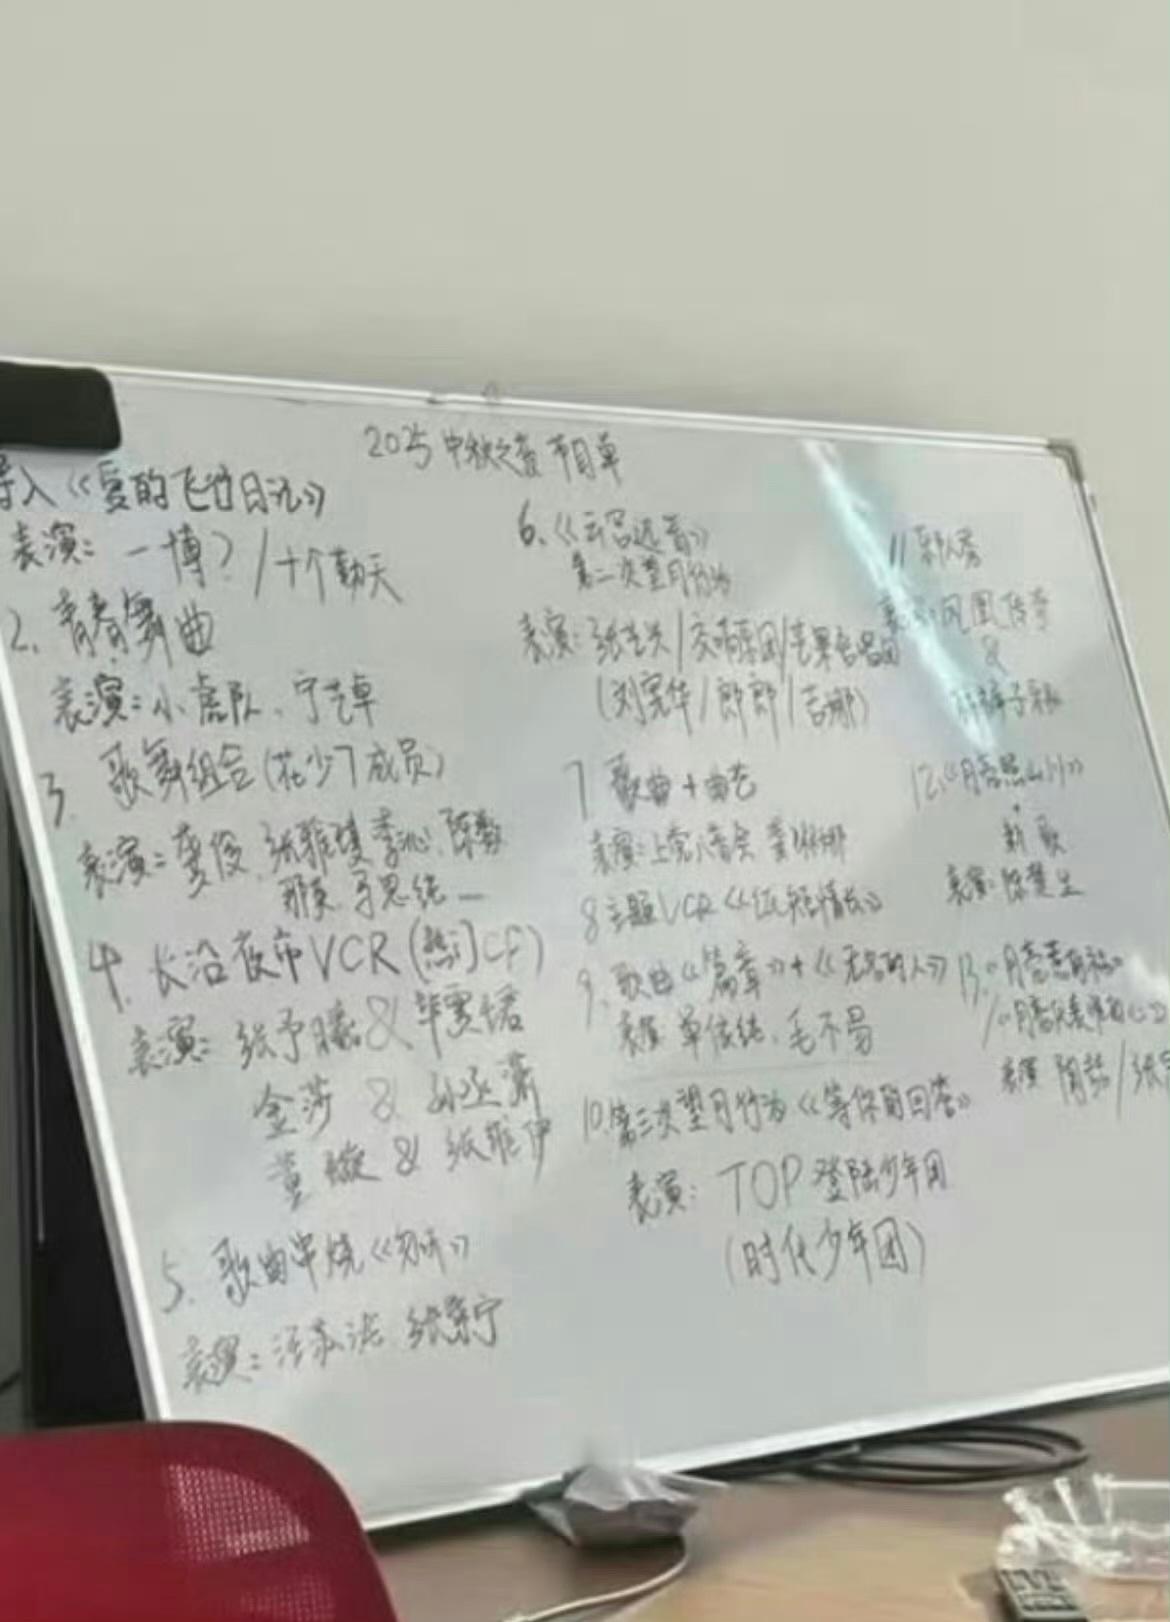 2025 中秋之夜 节目单
导入《夏的飞行日记》
表演：一博？/十个勤天
2. 青春舞曲
表演：小虎队、宁艺卓
3. 歌舞组合(花少7成员)
表演：龚俊、张雅琪 李沁、陈数
那英 马思纯
4. 长沿夜市VCR(热门CP)
表演：张予曦&毕雯珺
金莎 & 孙丞潇
董璇 & 张维伊
5. 歌曲串烧
表演：汪苏泷 张紫宁
6.《云宫迅音》
第二次望月行为
表演：张艺兴/交响乐团/芒果合唱团
(刘宪华/郎郎/吉娜)
7 歌曲+曲艺
表演：上党八音会 龚琳娜
8 主题VCR《纸短情长》
9. 歌曲《篇章》+《无名的人》
表演 单依纯、毛不易
10.第三次望月行为《等你的回答》
表演：TOP 登陆少年团
(时代少年团)
11
表演：凤凰传奇
&
12.《月亮照山川》
+
新歌
表演：陈楚生
13.
表演